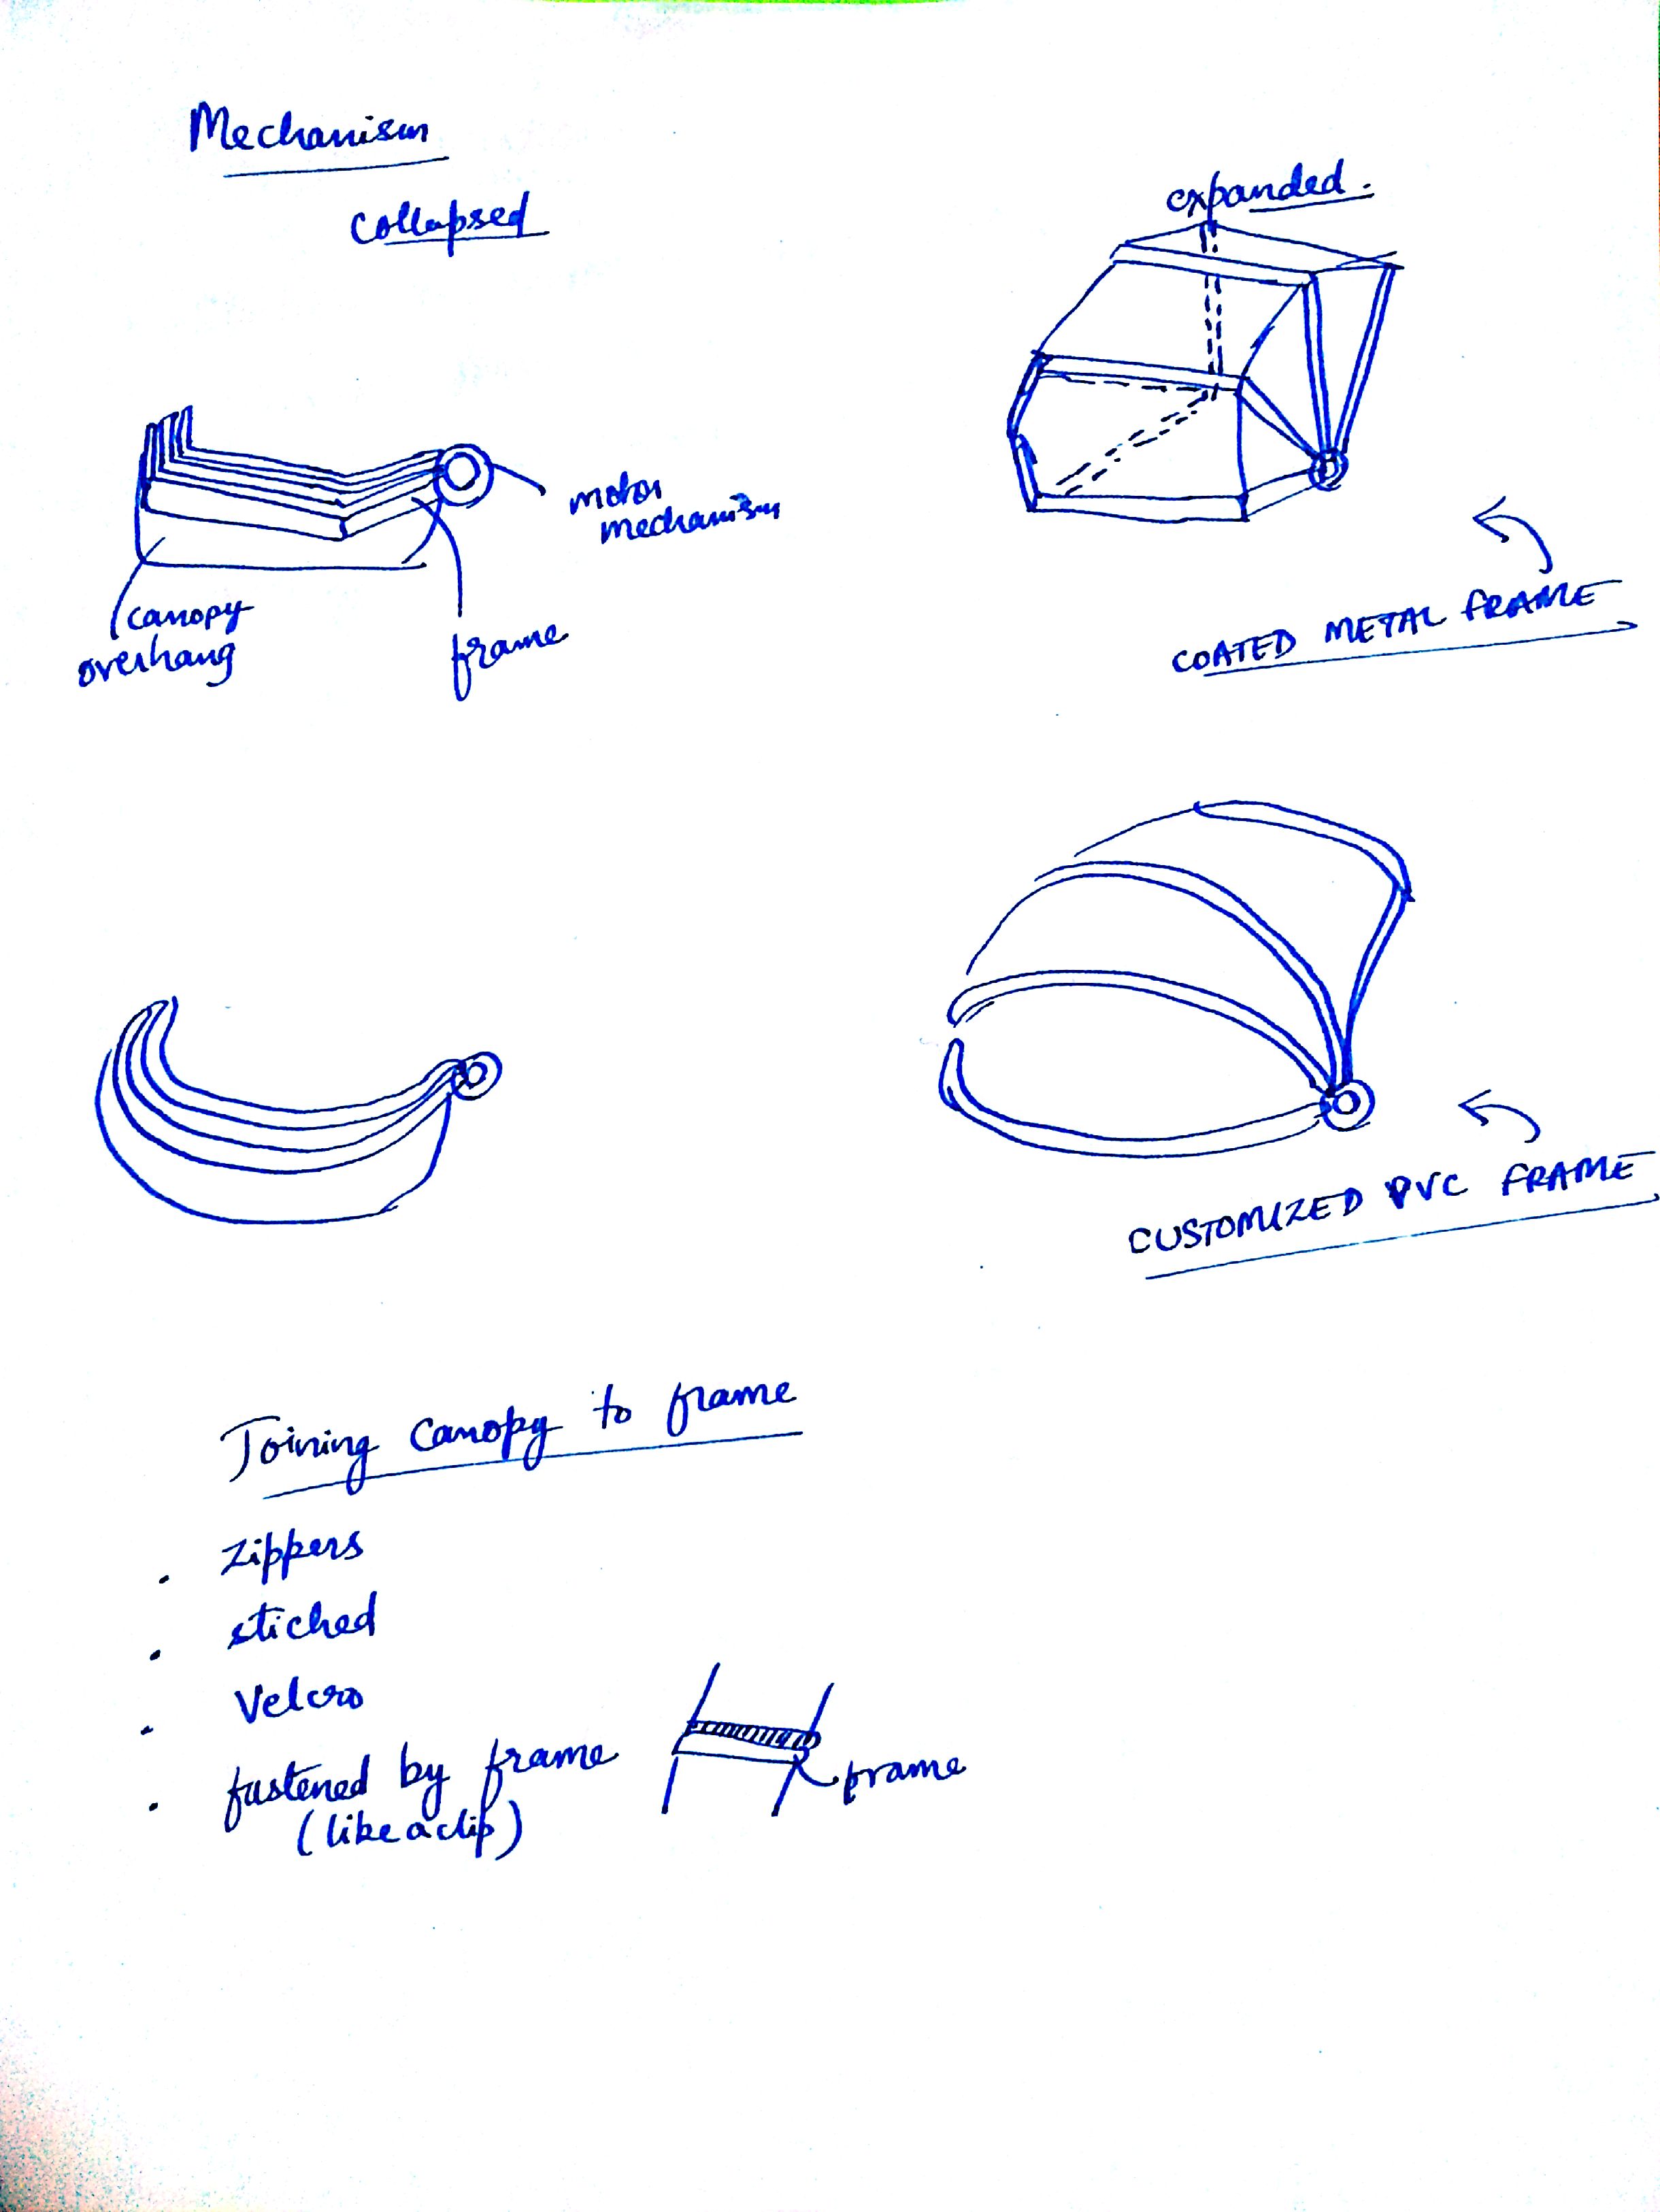 Mechanism
Collapsed
expanded.
motor
mechanism
canopy
overhang
frame
COATED METAL FRAME
CUSTOMIZED PVC FRAME
Joining Canopy to frame
. Zippers
. stiched
. Velcro
. fastened by frame
(like a clip)
frame